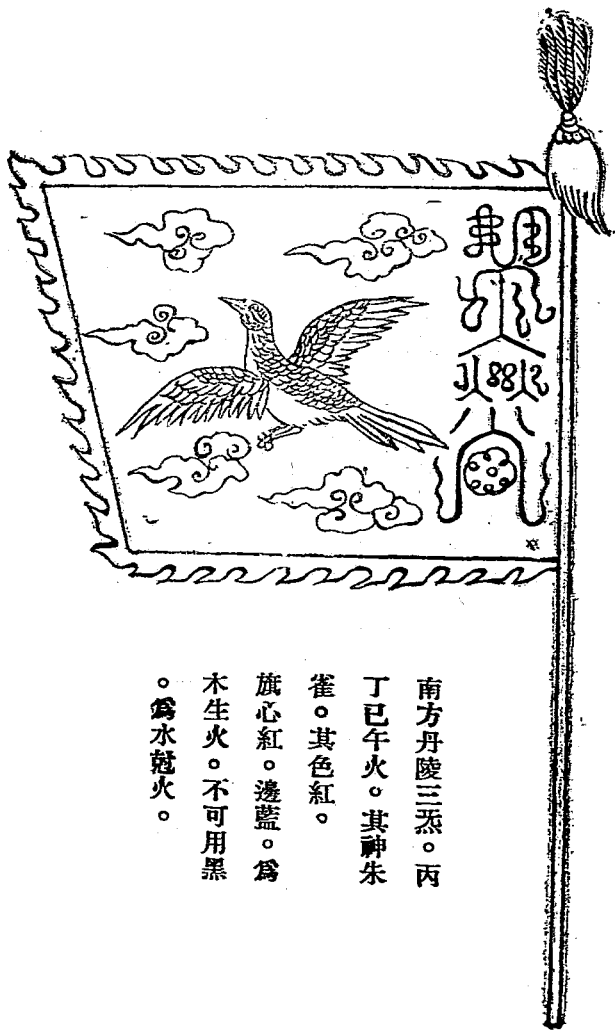 南方丹陵三炁。丙
丁巳午火。其神朱
雀。其色紅。
旗心紅。邊藍。爲
木生火。不可用黑
。爲水尅火。